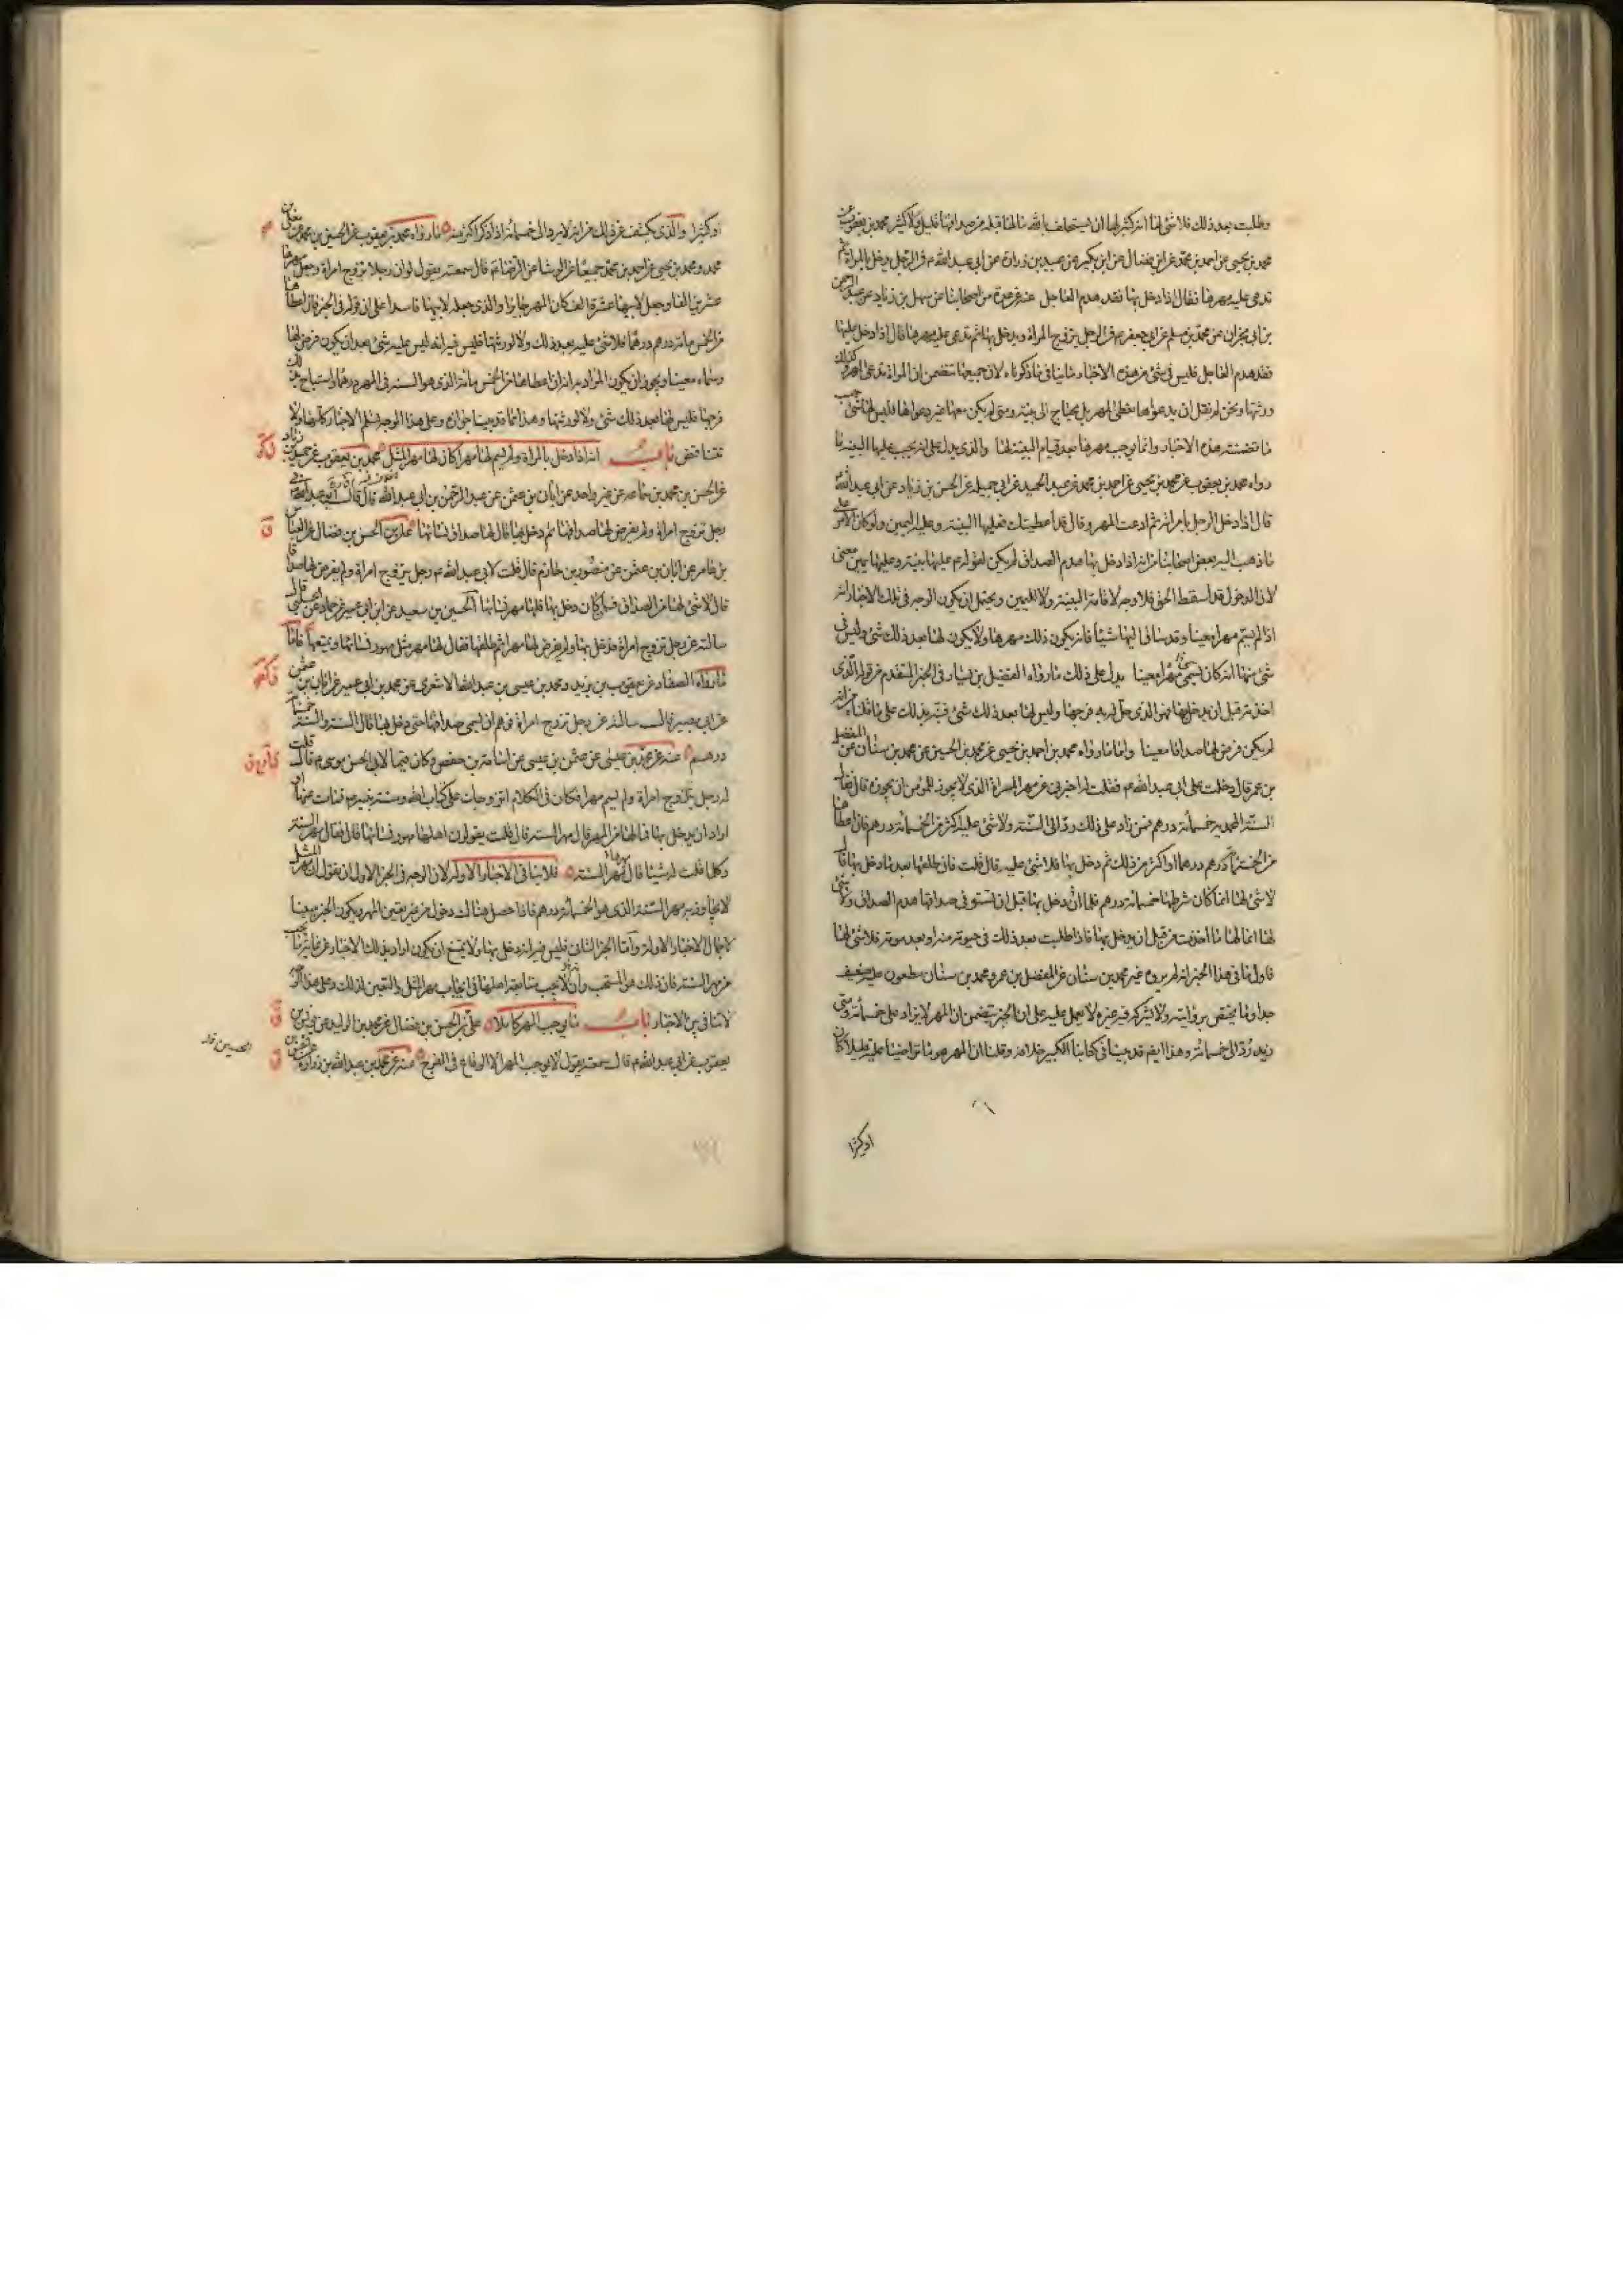 وطلبت بعد ذلك فلا شئ لها انه كثير لها ان يستحلف بالله ما لها قبله من صداقها قليل ولا كثير محمد بن يعقوب عن
محمد بن يحيى عن احمد بن محمد عن ابن فضال عن ابن بكير عن عبيد بن زرارة عن ابي عبد الله ع في الرجل يدخل بالمراة ثم
تدعى عليه مهرها فقال اذا دخل بها فقد هدم العاجل عنه عن عدة من اصحابنا عن سهل بن زياد عن عبد الرحمن
بن ابي نجران عن محمد بن مسلم عن ابي جعفر ع في الرجل يتزوج المراة ويدخل بها ثم تدعى عليه مهرها قال اذا دخل عليها
فقد هدم العاجل فليس في شئ من هذه الاخبار ما ينافي ما ذكرناه لان جميعها يتضمن ان المراة تدعى المهر وكذلك
ورثتها ونحن لم نقل ان بدعواها تعطى المهر بل يحتاج الى بينة ومتى لم يكن معها غير دعواها فليس لها شئ حسب
ما تضمنته هذه الاخبار وانما يوجب مهرها بعد قيام البينة لها والذي يدل على انه يجب عليها البينة ما
رواه محمد بن يعقوب عن محمد بن يحيى عن احمد بن محمد عن عبد الحميد عن ابي جميلة عن الحسن بن زياد عن ابي عبد الله ع
قال اذا دخل الرجل بامراته ثم ادعت المهر وقال قد اعطيتك فعليها البينة وعليه اليمين ولو كان الامر على
ما ذهب اليه بعض اصحابنا من انه اذا دخل بها هدم الصداق لم يكن لقوله ع عليها بينة وعليه يمين معنى
لان الدخول قد اسقط الحق فلا وجه لاقامة البينة ولا لليمين ويحتمل ان يكون الوجه في تلك الاخبار انه
اذا لم يسم مهرا معينا وقد ساق اليها شيئا فانه يكون ذلك مهرها ولا يكون لها بعد ذلك شئ وليس في
شئ منها انه كان سمى مهرا معينا يدل على ذلك ما رواه الفضيل بن يسار في الخبر المتقدم من قوله الذي
اخذته قبل ان يدخل بها فهو الذي حل له به فرجها وليس لها بعد ذلك شئ فنبه بذلك على ما قلناه من انه
لم يكن فرض لها صداقا معينا واما ما رواه محمد بن احمد بن يحيى عن محمد بن الحسين عن محمد بن سنان عن المفضل
بن عمر قال دخلت على ابي عبد الله ع فقلت له اخبرني عن مهر المراة الذي لا يجوز للمؤمن ان يجوزه قال فقال
السنة المحمدية خمسمائة درهم فمن زاد على ذلك رد الى السنة ولا شئ عليه اكثر من الخمسمائة درهم فان اعطاها
من الخمسمائة درهم درهما او اكثر من ذلك ثم دخل بها فلا شئ عليه قال قلت فان طلقها بعد ما دخل بها قال
لا شئ لها انما كان شرطها خمسمائة درهم فلما ان دخل بها قبل ان تستوفى صداقها هدم الصداق ولا شئ
لها انما لها ما اخذت من قبل ان يدخل بها فاذا طلبت بعد ذلك في حيوة منه او بعد موته فلا شئ لها
فاول ما في هذا الخبر انه لم يروه غير محمد بن سنان عن المفضل بن عمر ومحمد بن سنان مطعون عليه ضعيف
جدا وما يختص بروايته ولا يشركه فيه غيره لا يعمل عليه على ان الخبر يتضمن ان المهر لا يزاد على خمسمائة ومتى
زيد رد الى خمسمائة وهذا ايضم قد بينا في كتابنا الكبير خلافه وقلنا ان المهر هو ما تراضيا عليه قليلا كان
او كثيرا
او كثيرا والذي يكشف عن ذلك من انه لا يرد الى خمسمائة اذا ذكر اكثر منه ما رواه محمد بن يعقوب عن الحسين بن محمد عن معلى بن
محمد ومحمد بن يحيى عن احمد بن محمد جميعا عن الوشا عن الرضا ع قال سمعته يقول لو ان رجلا تزوج امراة وجعل مهرها
عشرين الفا وجعل لابيها عشرة الف كان المهر جايزا والذي جعله لابيها فاسدا على ان قوله في الخبر فان اعطاها
من الخمس مائة درهم درهما فلا شئ عليه بعد ذلك ولا لورثتها فليس فيه انه ليس عليه شئ بعد ان يكون فرض لها
وسماه معينا ويجوز ان يكون المراد به انه ان اعطاها من الخمس مائة الذي هو السنة في المهر درهما واستباح بذلك
فرجها فليس لها بعد ذلك شئ ولا لورثتها وهذا مما قد بينا جوازه وعلى هذا الوجه تسلم الاخبار كلها ولا
تتناقض باب انه اذا دخل بالمراة ولم يسم لها مهرا كان لها مهر المثل محمد بن يعقوب عن حميد بن زياد
عن الحسن بن محمد بن سماعة عن غير واحد عن ابان بن عثمن عن عبد الرحمن بن ابي عبد الله قال قال ابو عبد الله ع في
رجل تزوج امراة ولم يفرض لها صداقها ثم دخل بها قال لها صداق نسائها علي بن الحسن بن فضال عن العباس
بن عامر عن ابان بن عثمن عن منصور بن حازم قال قلت لابي عبد الله ع رجل يتزوج امراة ولم يفرض لها صداقا
قال لا شئ لها من الصداق فان كان دخل بها فلها مهر نسائها الحسين بن سعيد عن ابن ابي عمير عن حماد عن الحلبي قال
سالته عن رجل تزوج امراة فدخل بها ولم يفرض لها مهرا ثم طلقها فقال لها مهر مثل مهور نسائها ويمتعها فاما
ما رواه الصفار عن يعقوب بن يزيد ومحمد بن عيسى بن عبد الله الاشعري عن محمد بن ابي عمير عن ابان بن عثمن
عن ابي بصير قال سالته عن رجل تزوج امراة فوهم ان يسمى صداقها حتى دخل بها قال السنة والسنة خمسمائة
درهم عنه عن محمد بن عيسى عن عثمن بن عيسى عن اسامة بن حفص وكان قيما لابي الحسن موسى ع قال قلت
له رجل يتزوج امراة ولم يسم مهرا وكان في الكلام اتزوجك على كتاب الله وسنة نبيه ع فمات عنها او
اراد ان يدخل بها فما لها من المهر قال مهر السنة قال قلت يقولون اهلها مهور نسائها قال فقال مهر السنة
وكلما قلت له شيئا قال مهر السنة فلا ينافي الاخبار الاولة لان الوجه في الخبر الاول ان نقول ان مهر المثل
لا يجاوز به مهر السنة الذي هو الخمسمائة درهم فاذا حصل هناك دخول من غير تعيين المهر ويكون الخبر مبينا
لاجمال الاخبار الاولة واما الخبر الثاني فليس فيه انه دخل بها ولا يمتنع ان يكون اراد بذلك الاخبار عن غاية ما يجب
من مهر السنة فان ذلك هو المستحب وان لا يجب متابعة اهلها في ايجاب مهر المثل والتعيين لذلك وعلى هذا الوجه
لا تنافي بين الاخبار باب ما يوجب المهر كاملا علي بن الحسن بن فضال عن محمد بن الوليد عن يونس بن
يعقوب عن ابي عبد الله ع قال سمعته يقول لا يوجب المهر الا الوقاع في الفرج عنه عن محمد بن عبد الله بن زرارة